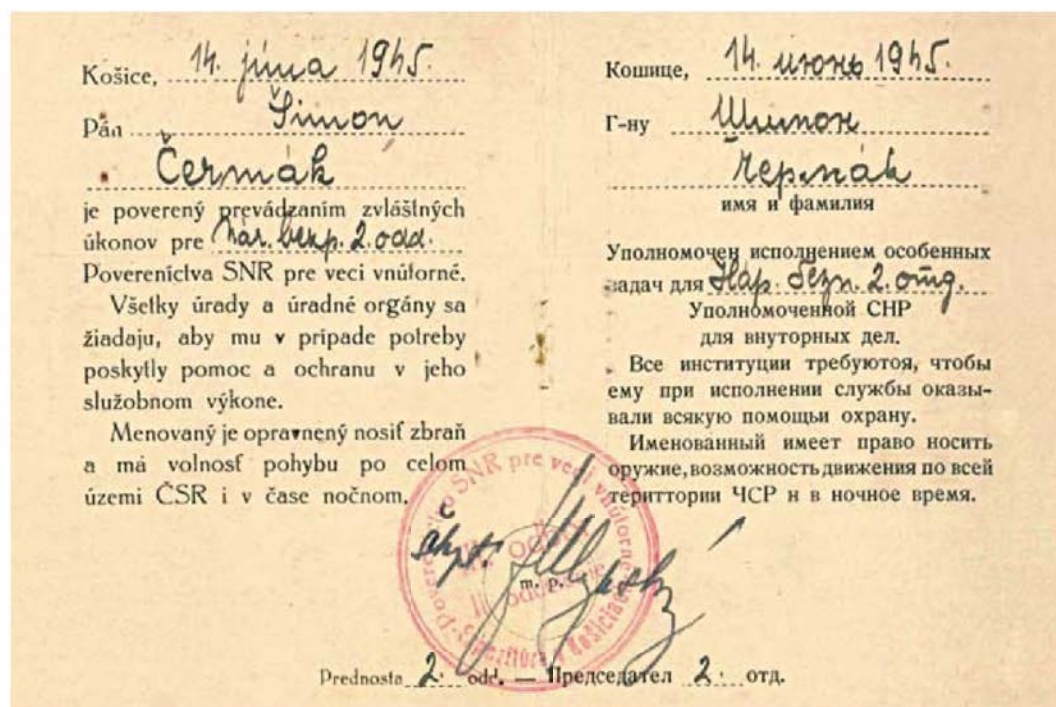 Košice, 14. júna 1945.
Pán Šimon
Čermák
je poverený prevádzaním zvláštných
úkonov pre Nár. bezp. 2. odd.
Povereníctva SNR pre veci vnútorné.
Všetky úrady a úradné orgány sa
žiadaju, aby mu v prípade potreby
poskytly pomoc a ochranu v jeho
služobnom výkone.
Menovaný je opravnený nosiť zbraň
a má volnosť pohybu po celom
území ČSR i v čase nočnom.
Кошице, 14. июнь 1945.
Г-ну Шимон
Чермák
имя и фамилия
Уполномочен исполнением особенных
задач для Нар. безп. 2. отд.
Уполномоченной СНР
для внуторных дел.
Все институции требуютоя, чтобы
ему при исполнении службы оказы-
вали всякую помощьи охрану.
Именованный имеет право носить
оружие, возможность движения по всей
териттории ЧСР н в ночное время.
Povereníctvo SNR pre veci vnútorné
m. p.
Prednosta 2. odd. — Председател 2. отд.